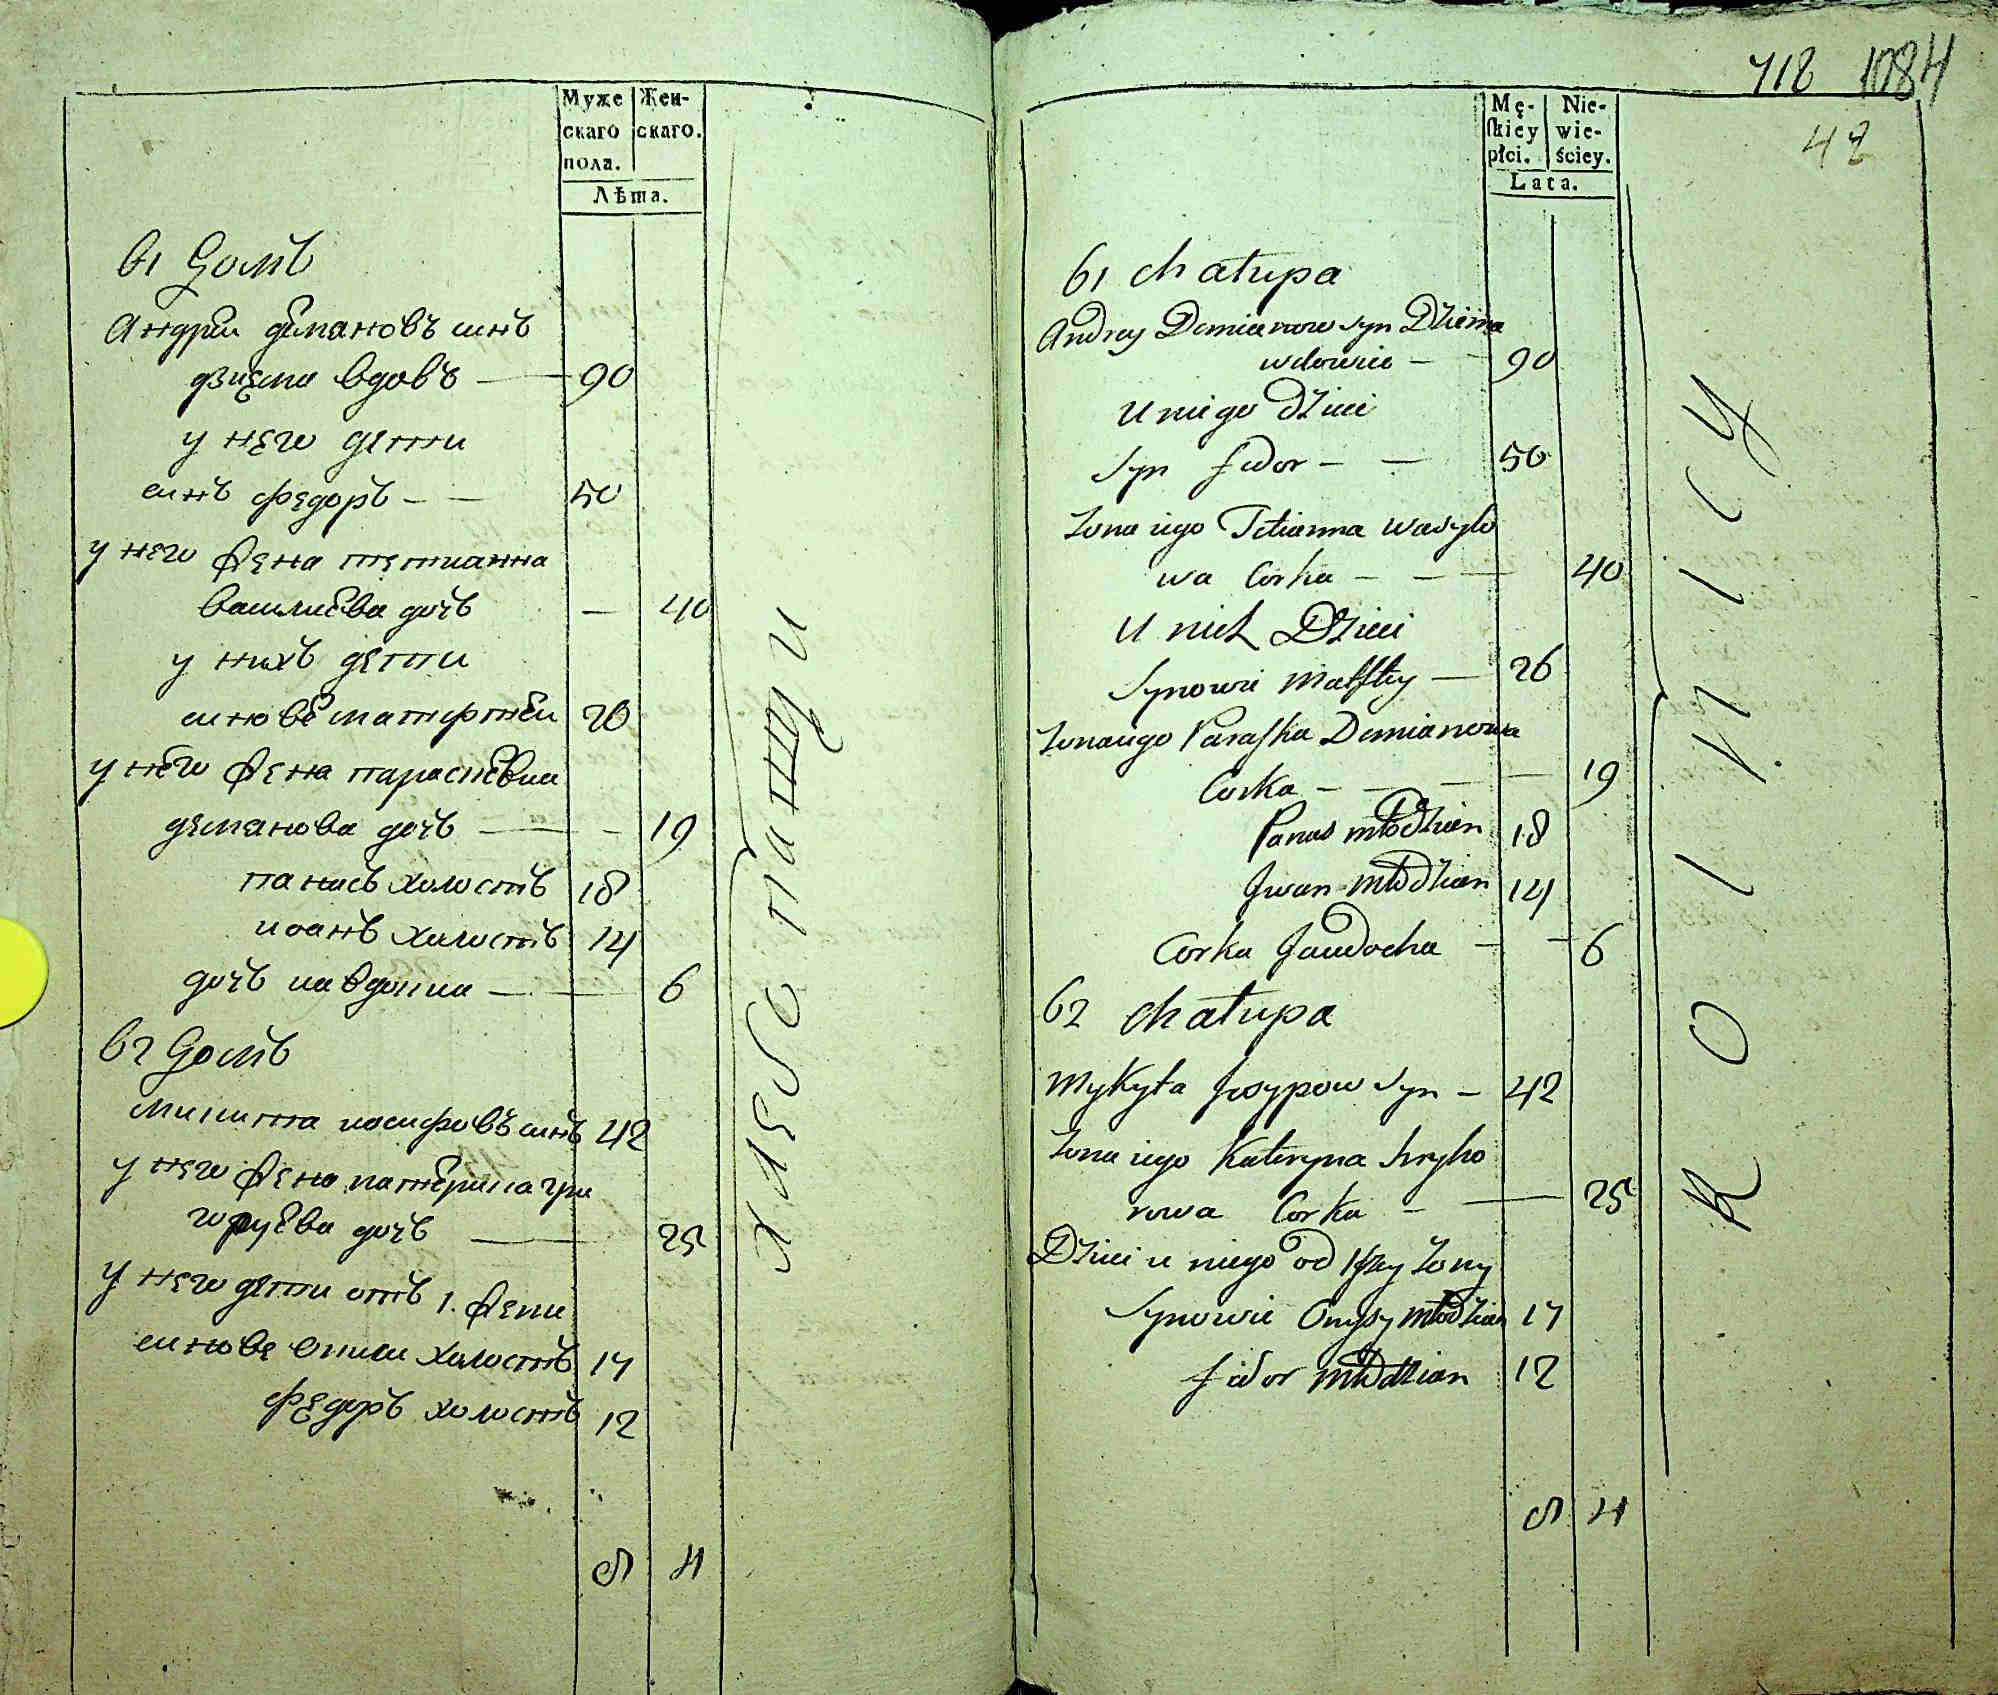 Муже
скаго
пола.
Жен-
скаго.
Лѣта.
61 Домъ
Андрей демяновъ синъ
дзиема вдовъ — 90
у него дети
синъ федоръ — — 50
у него жена тетианна
василиева дочъ — 40
у нихъ дети
синове матфтей 26
у него жена парасцевиа
демянова дочъ — — 19
панасъ холостъ 18
иоанъ холостъ 14
дочъ иавдокиа — — 6
62 Домъ
Микита иосифовъ синъ 42
у него жена катерина гри
горуева дочъ — 25
у него дети отъ 1. жени
синове онисий холостъ 17
федоръ холостъ 12
8 4
хлебопашци
718 1084
42
Mę-
skiey
płci.
Nie-
wie-
ściey.
Lata.
61 chałupa
Andrey Demianow syn Dziema
wdowiec — — 90
U niego Dzieci
Syn fedor — — 50
Zona iego Tetianna Wasylo
wa Corka — — — 40
U nich Dzieci
Synowie Matftey — 26
Zona iego Paraska Demianowa
Corka — — — — 19
Panas młodzian 18
Jwan młodzian 14
Corka Jawdocha — — 6
62 chałupa
Mykyta Josypow Syn — 42
Zona iego Kateryna hryho
rowa Corka — — 25
Dzieci u niego od 1szey Zony
Synowie Onysy młodzian 17
fedor młodzian 12
8 4
ROLNICY